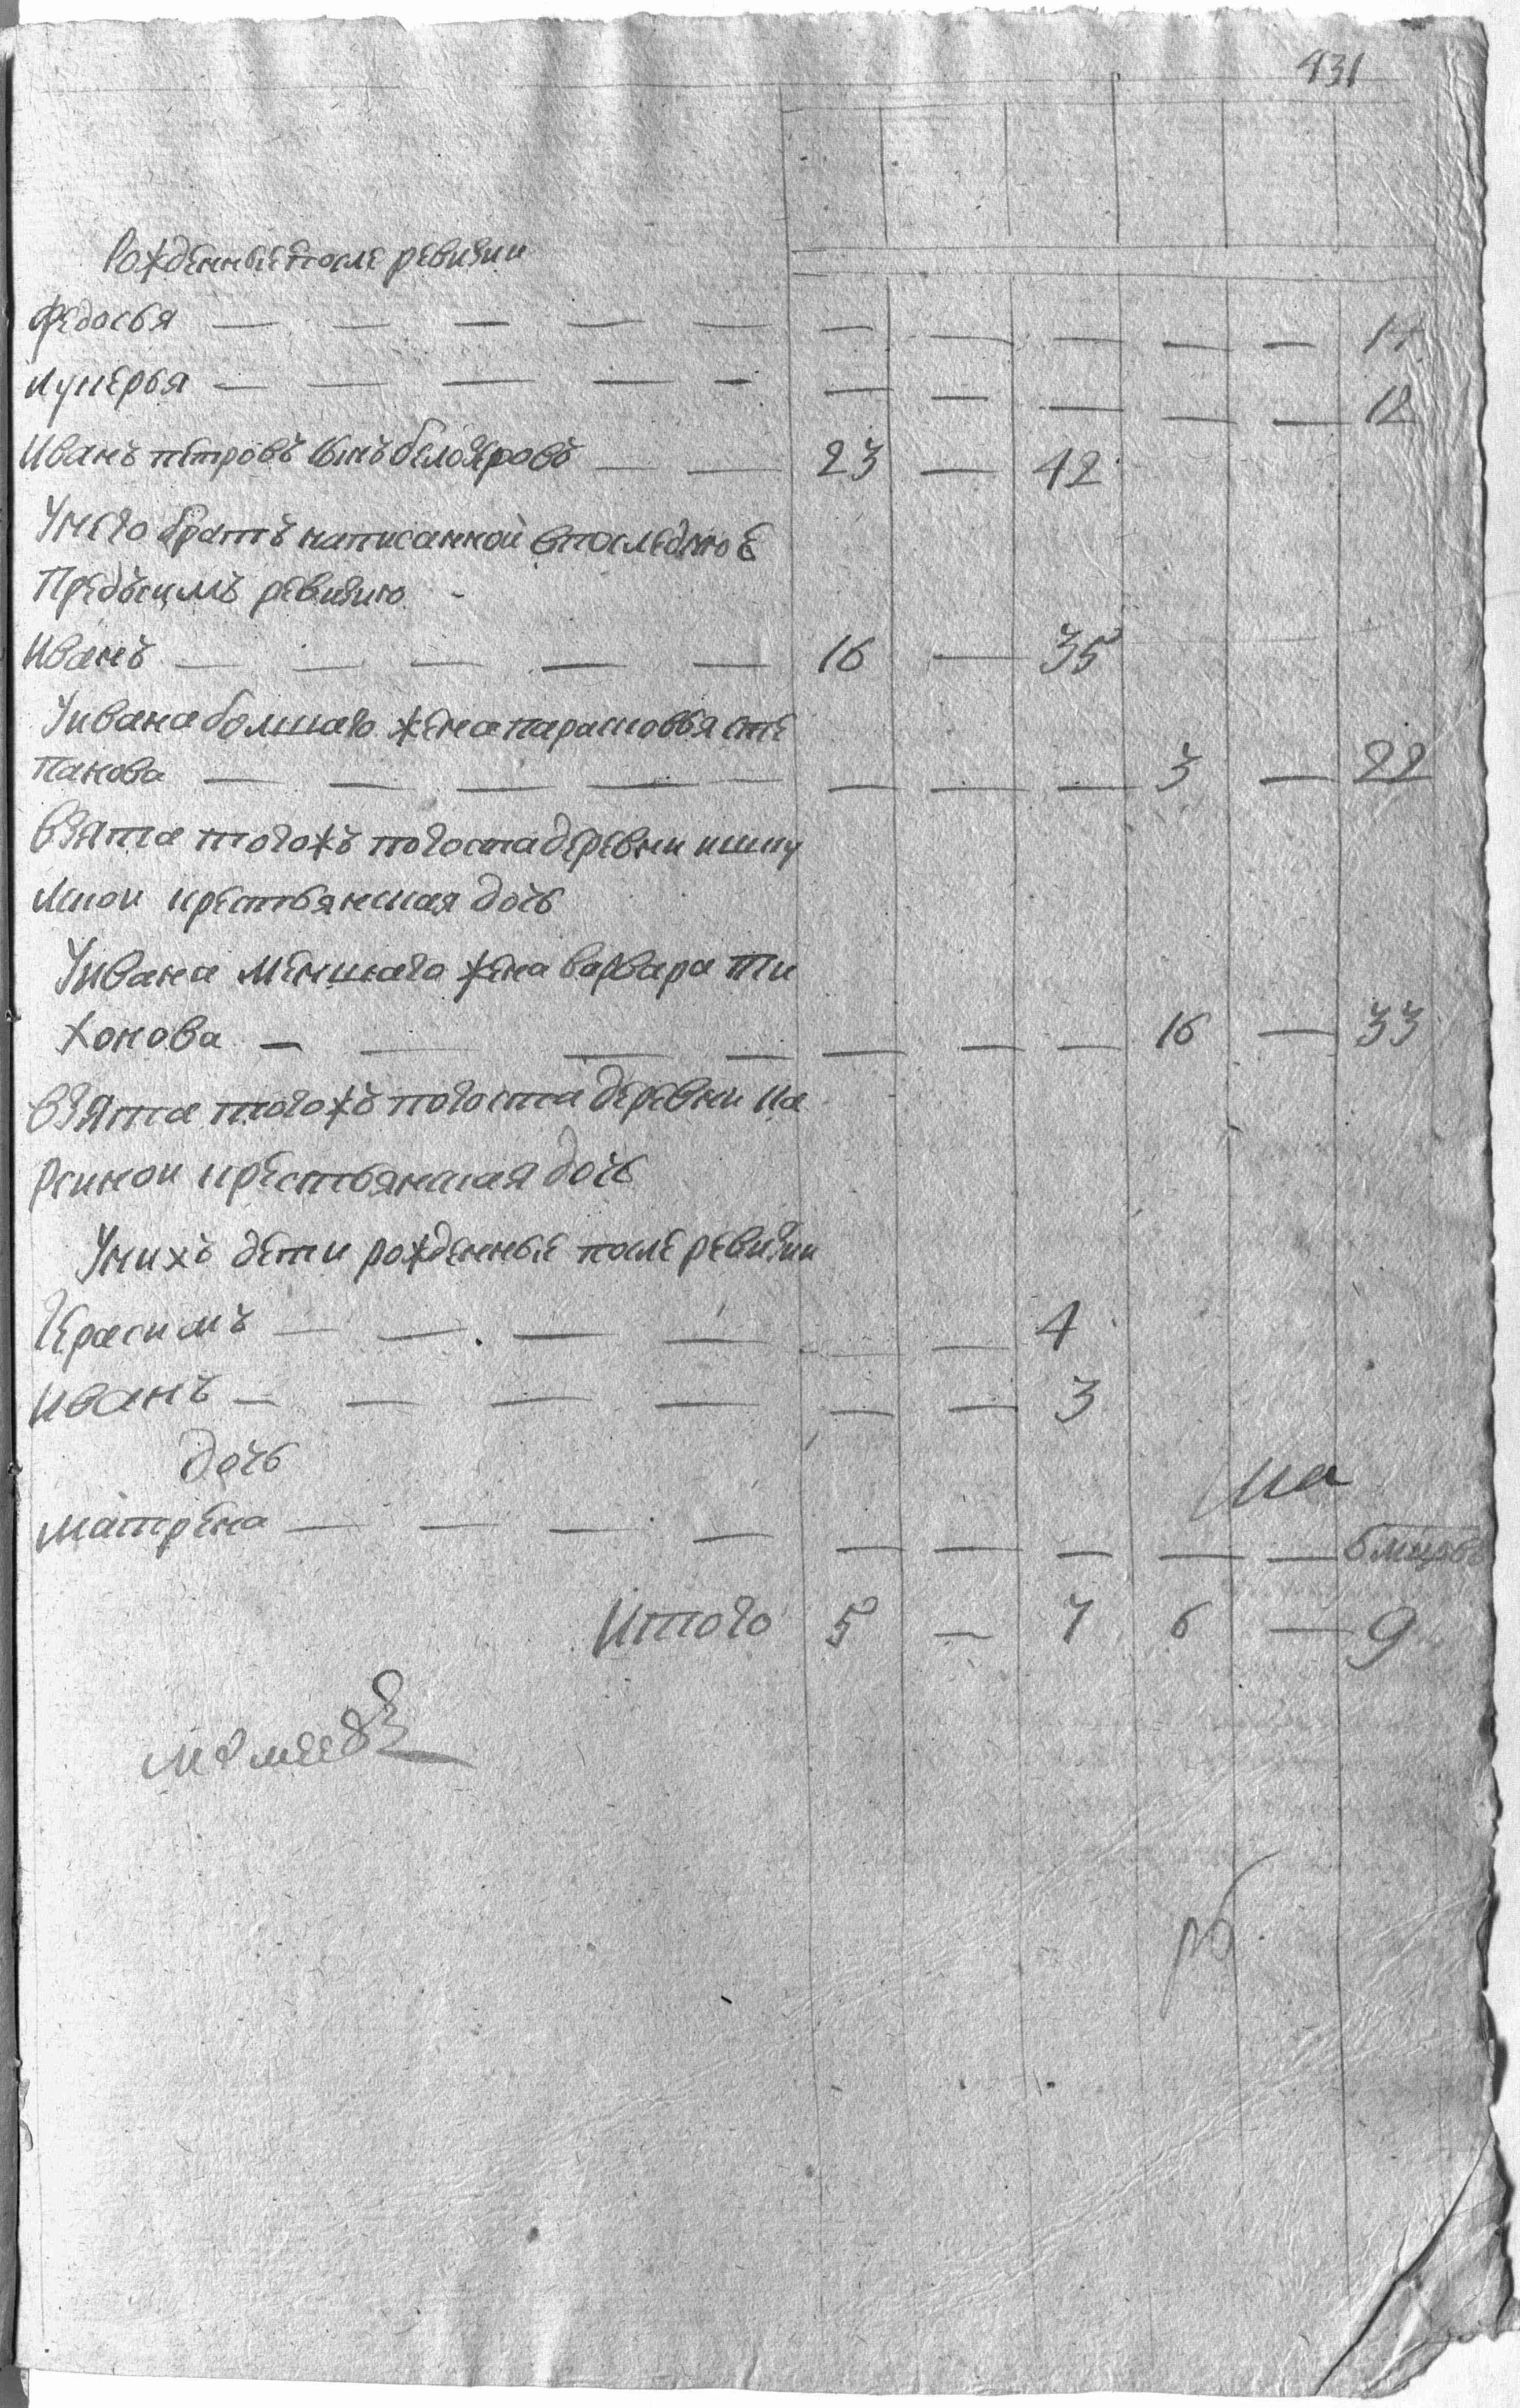 431
Рожденные после ревизии
Федосья — — — — — — — — — — 14
Лукерья — — — — — — — — — — 12
Иванъ петровъ сынъ белозеровъ — — 23 — 42
У него братъ написанной впоследнюю
Предъсимъ ревизию
Иванъ — — — — — 16 — 35
Уивана болшаго жена парасковья сте
панова — — — — — — — — 3 — 22
взята тогожъ погоста деревни
крестьянская дочь
Уивана меншаго жена варвара ти
хонова — — — — — — — 16 — 33
взята тогожъ погоста деревни ка
рсикои крестьянская дочь
Унихъ дети рожденные после ревизии
Герасимъ — — — — — — 4
Иванъ — — — — — — 3
дочь
матрена — — — — — — — — — 6 мцовъ
Итого 5 — 7 6 — 9